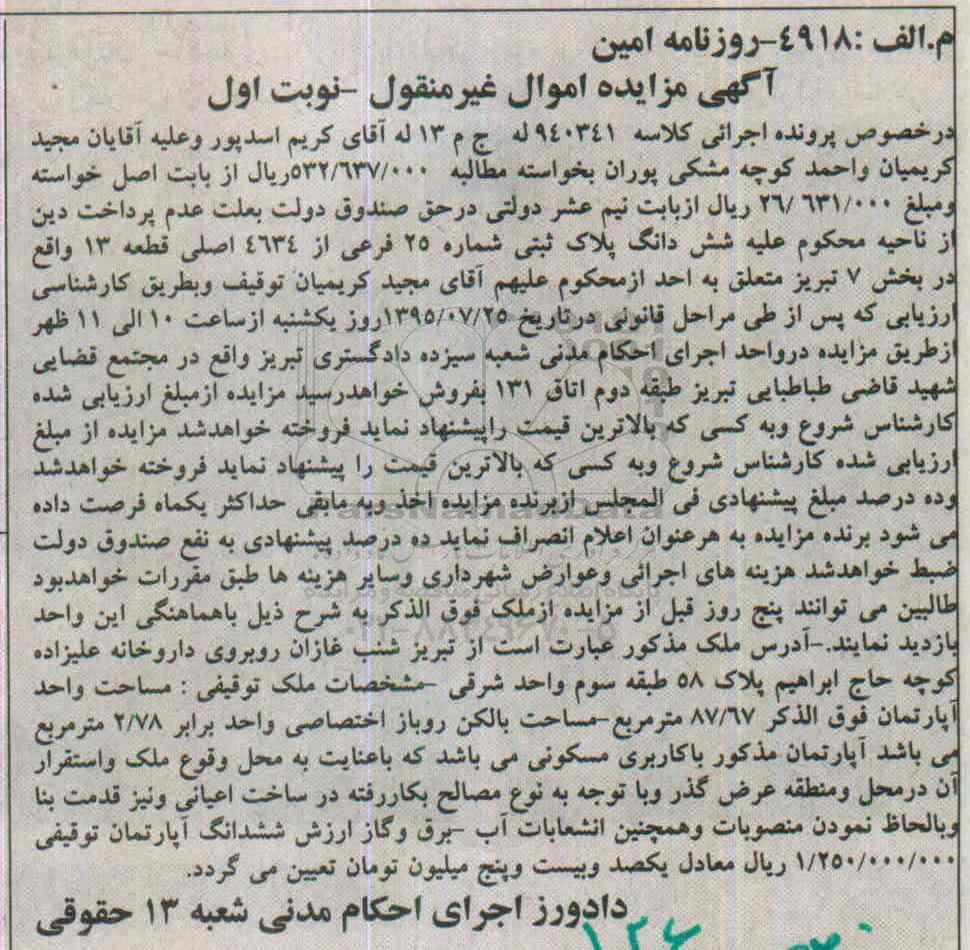 م.الف :٤٩١٨-روزنامه امین
آگهی مزایده اموال غیرمنقول -نوبت اول
درخصوص پرونده اجرائی کلاسه ٩٤٠٣٤١ له ج م ١٣ له آقای کریم اسدپور وعلیه آقایان مجید
کریمیان واحمد کوچه مشکی پوران بخواسته مطالبه ٥٣٢/٦٣٧/٠٠٠ریال از بابت اصل خواسته
ومبلغ ٢٦/٦٣١/٠٠٠ ریال ازبابت نیم عشر دولتی درحق صندوق دولت بعلت عدم پرداخت دین
از ناحیه محکوم علیه شش دانگ پلاک ثبتی شماره ٢٥ فرعی از ٤٦٣٤ اصلی قطعه ١٣ واقع
در بخش ٧ تبریز متعلق به احد ازمحکوم علیهم آقای مجید کریمیان توقیف وبطریق کارشناسی
ارزیابی که پس از طی مراحل قانونی درتاریخ ١٣٩٥/٠٧/٢٥روز یکشنبه ازساعت ١٠ الی ١١ ظهر
ازطریق مزایده درواحد اجرای احکام مدنی شعبه سیزده دادگستری تبریز واقع در مجتمع قضایی
شهید قاضی طباطبایی تبریز طبقه دوم اتاق ١٣١ بفروش خواهدرسید مزایده ازمبلغ ارزیابی شده
کارشناس شروع وبه کسی که بالاترین قیمت راپیشنهاد نماید فروخته خواهدشد مزایده از مبلغ
ارزیابی شده کارشناس شروع وبه کسی که بالاترین قیمت را پیشنهاد نماید فروخته خواهدشد
وده درصد مبلغ پیشنهادی فی المجلس ازبرنده مزایده اخذ وبه مابقی حداکثر یکماه فرصت داده
می شود برنده مزایده به هرعنوان اعلام انصراف نماید ده درصد پیشنهادی به نفع صندوق دولت
ضبط خواهدشد هزینه های اجرائی وعوارض شهرداری وسایر هزینه ها طبق مقررات خواهدبود
طالبین می توانند پنج روز قبل از مزایده ازملک فوق الذکر به شرح ذیل باهماهنگی این واحد
بازدید نمایند.-آدرس ملک مذکور عبارت است از تبریز شنب غازان روبروی داروخانه علیزاده
کوچه حاج ابراهیم پلاک ٥٨ طبقه سوم واحد شرقی -مشخصات ملک توقیفی : مساحت واحد
آپارتمان فوق الذکر ٨٧/٦٧ مترمربع-مساحت بالکن روباز اختصاصی واحد برابر ٢/٧٨ مترمربع
می باشد آپارتمان مذکور باکاربری مسکونی می باشد که باعنایت به محل وقوع ملک واستقرار
آن درمحل ومنطقه عرض گذر وبا توجه به نوع مصالح بکاررفته در ساخت اعیانی ونیز قدمت بنا
وبالحاظ نمودن منصوبات وهمچنین انشعابات آب -برق وگاز ارزش ششدانگ آپارتمان توقیفی
١/٢٥٠/٠٠٠/٠٠٠ ریال معادل یکصد وبیست وپنج میلیون تومان تعیین می گردد.
دادورز اجرای احکام مدنی شعبه ١٣ حقوقی